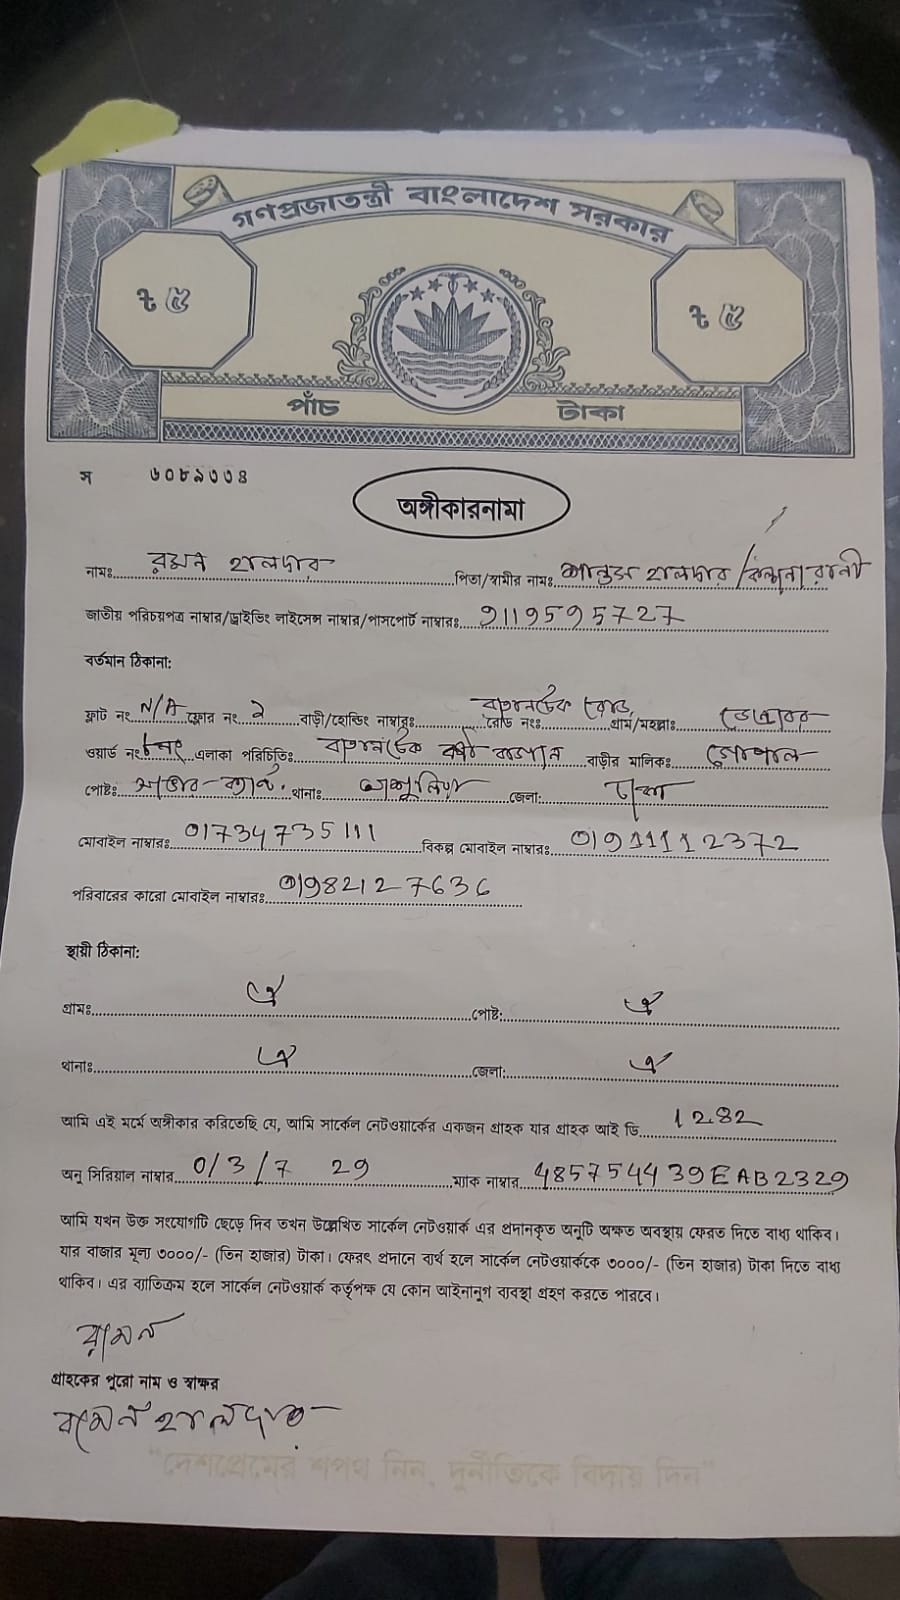 গণপ্রজাতন্ত্রী বাংলাদেশ সরকার
৳ ৫ ৳ ৫
পাঁচ টাকা
স ৬০৮৯৩৩৪
অঙ্গীকারনামা
নামঃ রমেন হালদার পিতা/স্বামীর নামঃ হালদার / রানী
জাতীয় পরিচয়পত্র নাম্বার/ড্রাইভিং লাইসেন্স নাম্বার/পাসপোর্ট নাম্বারঃ 9119595727
বর্তমান ঠিকানা:
ফ্লাট নং N/A ফ্লোর নং ২ বাড়ী/হোল্ডিং নাম্বারঃ রোড নংঃ রোড গ্রাম/মহল্লাঃ
ওয়ার্ড নংঃ এলাকা পরিচিতিঃ বাড়ীর মালিকঃ গোপাল
পোষ্টঃ থানাঃ জেলা: ঢাকা
মোবাইল নাম্বারঃ 01734735111 বিকল্প মোবাইল নাম্বারঃ 01911112372
পরিবারের কারো মোবাইল নাম্বারঃ 01982127636
স্থায়ী ঠিকানা:
গ্রামঃ ঐ পোষ্ট: ঐ
থানাঃ ঐ জেলা: ঐ
আমি এই মর্মে অঙ্গীকার করিতেছি যে, আমি সার্কেল নেটওয়ার্কের একজন গ্রাহক যার গ্রাহক আই ডি 1282
অনু সিরিয়াল নাম্বার 0/3/7 29 ম্যাক নাম্বার 485754439EAB2329
আমি যখন উক্ত সংযোগটি ছেড়ে দিব তখন উল্লেখিত সার্কেল নেটওয়ার্ক এর প্রদানকৃত অনুটি অক্ষত অবস্থায় ফেরত দিতে বাধ্য থাকিব।
যার বাজার মূল্য ৩০০০/- (তিন হাজার) টাকা। ফেরৎ প্রদানে ব্যর্থ হলে সার্কেল নেটওয়ার্ককে ৩০০০/- (তিন হাজার) টাকা দিতে বাধ্য
থাকিব। এর ব্যতিক্রম হলে সার্কেল নেটওয়ার্ক কর্তৃপক্ষ যে কোন আইনানুগ ব্যবস্থা গ্রহণ করতে পারবে।
রমেন
গ্রাহকের পুরো নাম ও স্বাক্ষর
রমেন হালদার
"দেশপ্রেমের শপথ নিন, দুর্নীতিকে বিদায় দিন"